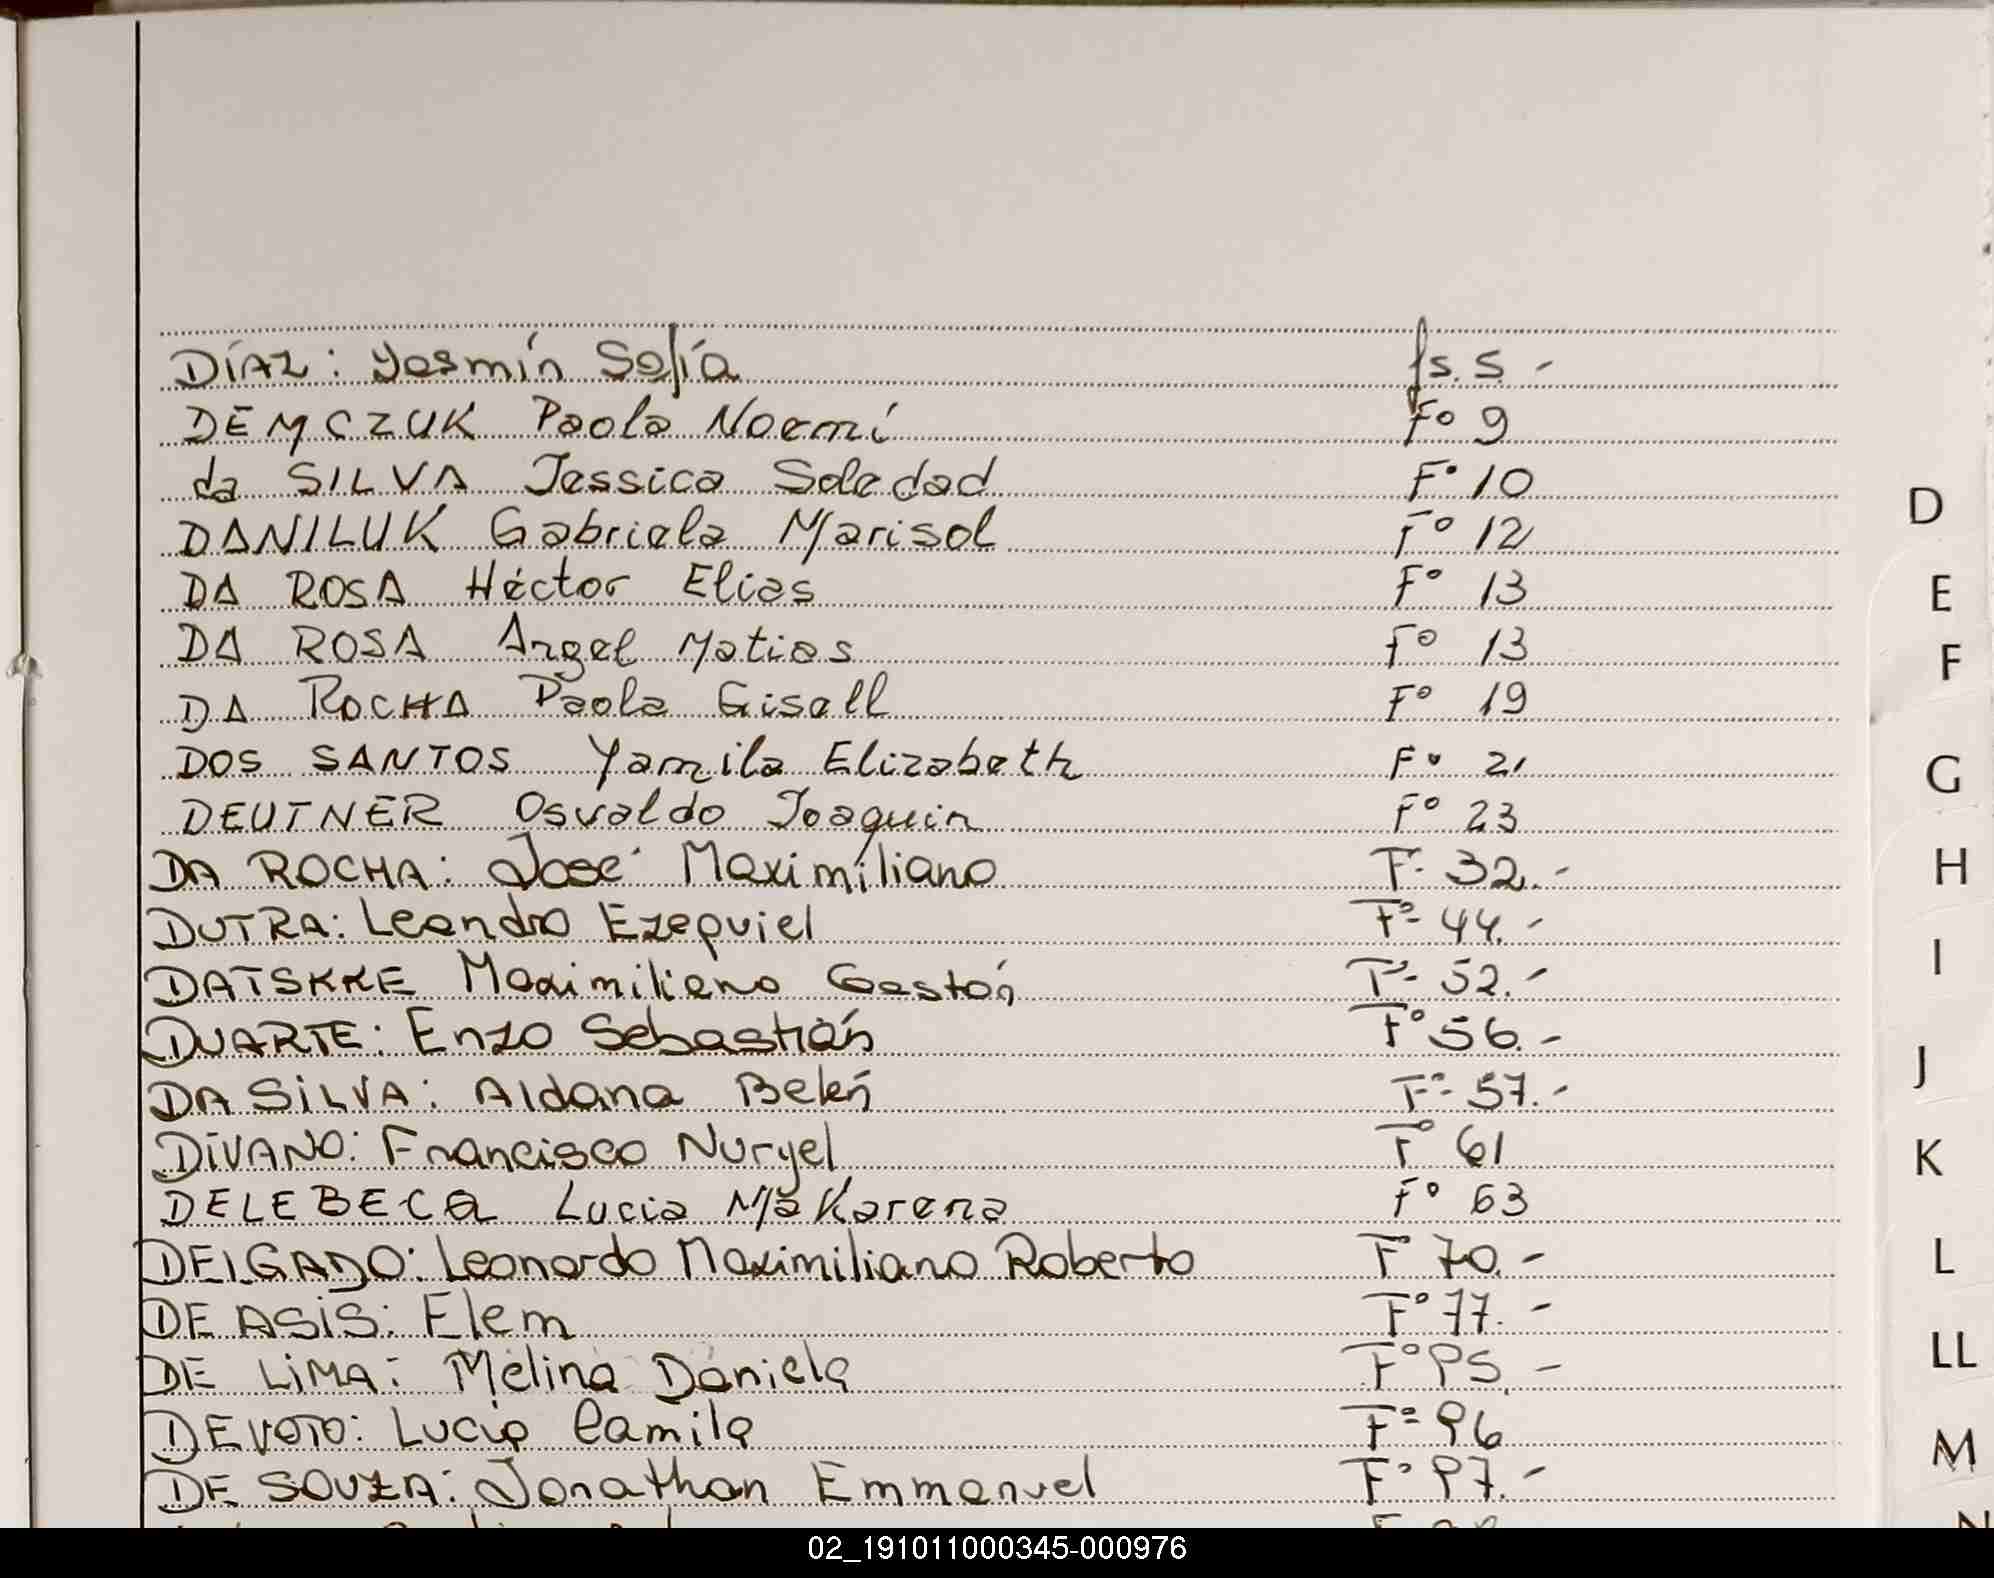 DÍAZ: Yasmín Sofía fs. 5.-
DEMCZUK Paola Noemí F° 9
da SILVA Jessica Soledad F° 10
DANILUK Gabriela Marisol F° 12
DA ROSA Héctor Elias F° 13
DA ROSA Angel Matias F° 13
DA ROCHA Paola Gisell F° 19
DOS SANTOS Yamila Elizabeth F° 21
DEUTNER Osvaldo Joaquin F° 23
DA ROCHA: José Maximiliano F° 32.-
DUTRA: Leandro Ezequiel F° 44.-
DATSKKE Maximiliano Gastón F° 52.-
DUARTE: Enzo Sebastián F° 56.-
DA SILVA: Aldana Belén F° 57.-
DIVANO: Francisco Nuryel F° 61
DELEBECQ Lucia Ma Karena F° 63
DELGADO: Leonardo Maximiliano Roberto F° 70.-
DE ASIS: Elem F° 77.-
DE LIMA: Melina Daniela F° 95.-
DEVOTO: Lucia Camila F° 96
DE SOUZA: Jonathan Emmanuel F° 97.-
D
E
F
G
H
I
J
K
L
LL
M
N
02_191011000345-000976